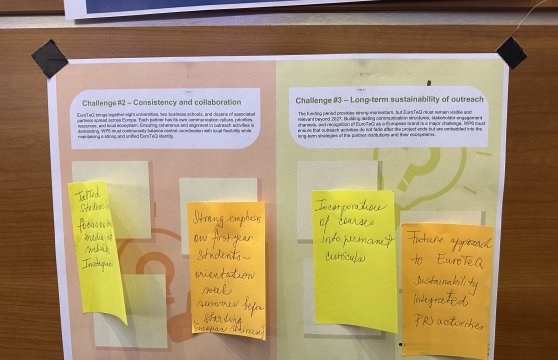 Challenge #2 – Consistency and collaboration
EuroTeQ brings together eight universities, two business schools, and dozens of associated
partners spread across Europe. Each partner has its own communication culture, priorities,
resources, and local ecosystem. Ensuring coherence and alignment in outreach activities is
demanding. WP6 must continuously balance central coordination with local flexibility while
maintaining a strong and unified EuroTeQ identity.
Challenge #3 – Long-term sustainability of outreach
The funding period provides strong momentum, but EuroTeQ must remain visible and
relevant beyond 2027. Building lasting communication structures, stakeholder engagement
channels, and recognition of EuroTeQ as a European brand is a major challenge. WP6 must
ensure that outreach activities do not fade after the project ends but are embedded into the
long-term strategies of the partner institutions and their ecosystems.
Student
focus on
media,
Instagram
Strong emphasis
on first year
students –
orientation
week
summer before
starting
Incorporation
of courses
into permanent
curricula
Future approach
to EuroTeQ
sustainability
integrated
PR activities